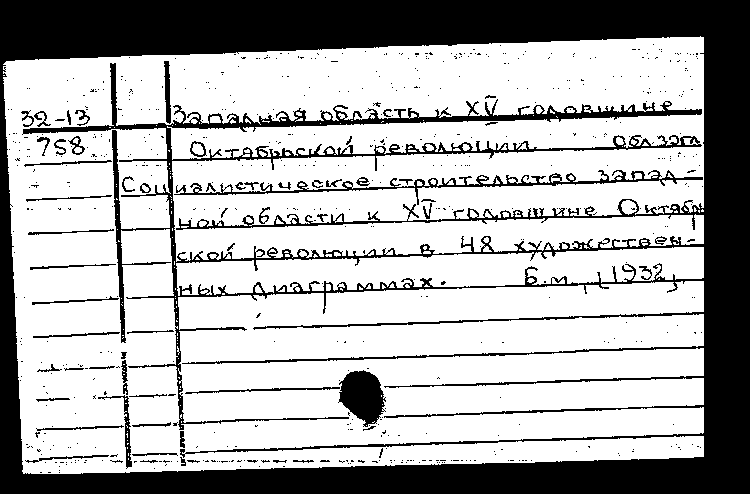 32-13 Западная область к XV годовщине
758 Октябрьской революции. Обл. загл.
Социалистическое строительство Запад-
ной области к XV годовщине Октябрь
ской революции в 48 художествен-
ных диаграммах. Б.м., [1932]